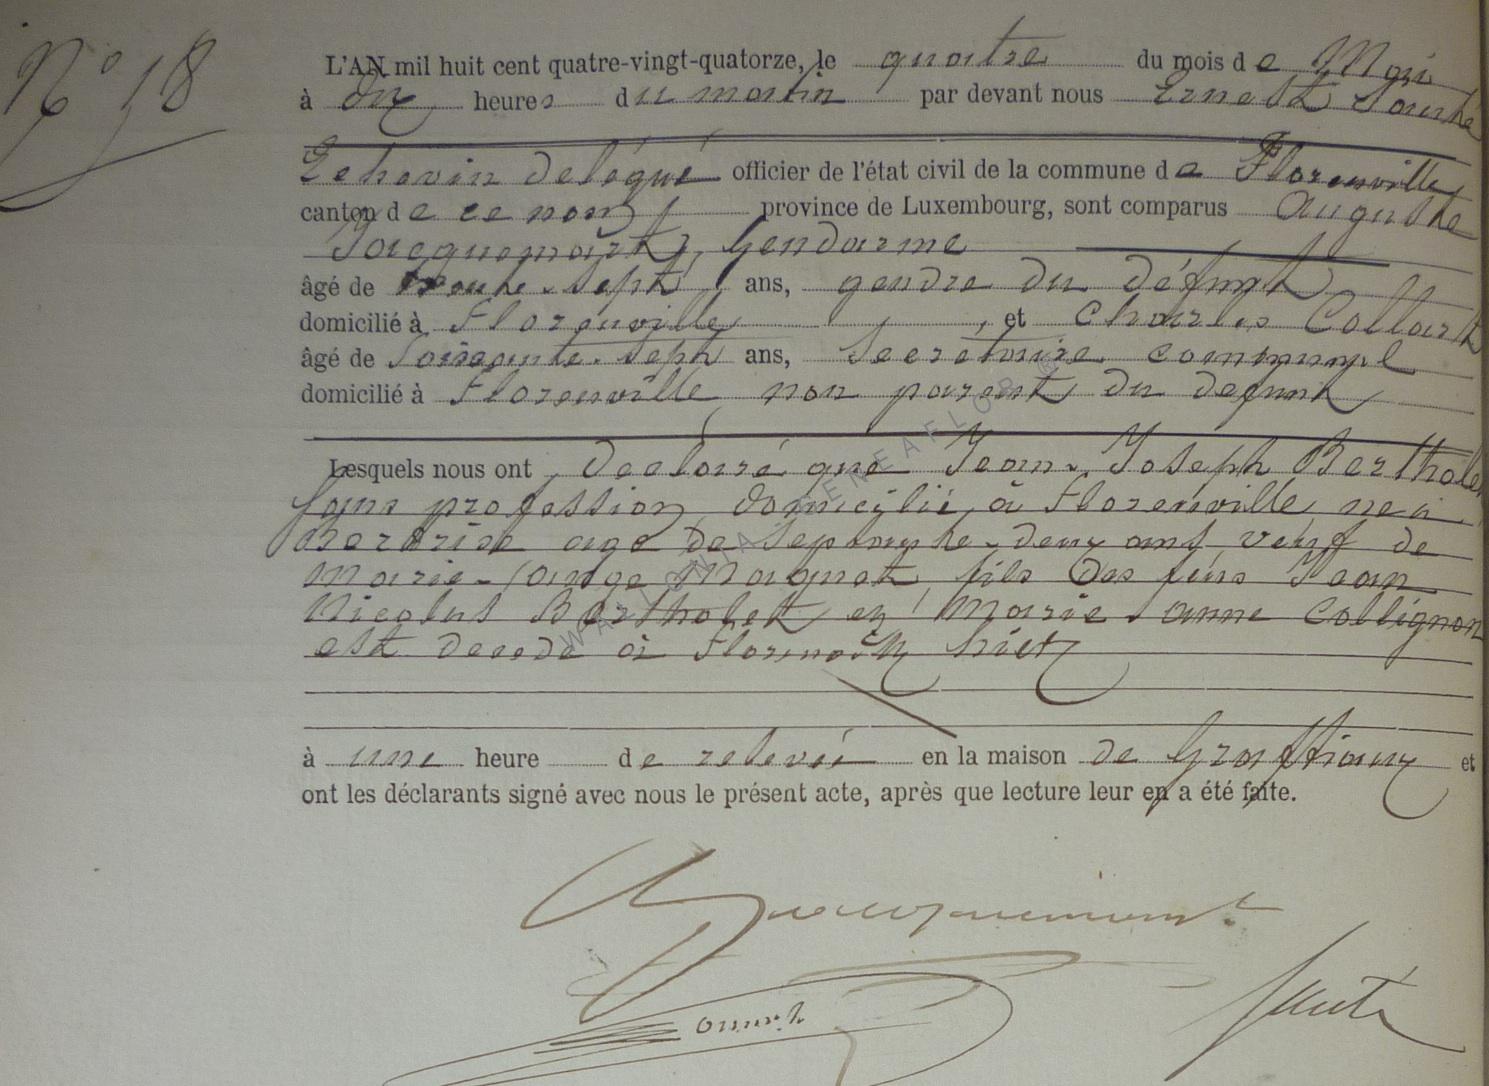 N° 18
L'AN mil huit cent quatre-vingt-quatorze, le quatre du mois de Mai
à dix heures du matin par devant nous Ernest
Echevin délégué officier de l'état civil de la commune de Florenville
canton de ce nom province de Luxembourg, sont comparus Auguste
Jacquemart, Gendarme
âgé de trente-sept ans, gendre du défunt
domicilié à Florenville, et Charles Collart
âgé de Soixante-sept ans, Secrétaire communal
domicilié à Florenville non parent du defunt
Lesquels nous ont declaré que Jean-Joseph Berthole
sans profession, domicilié, à Florenville, né à
age de Septante-deux ans veuf de
Marie- Maquet, fils des feus Jean
Nicolas Bertholet et Marie-anne Collignon
est décédé à hier
à une heure de relevée en la maison de et
ont les déclarants signé avec nous le présent acte, après que lecture leur en a été faite.
WALLONIA GENEAFLOR